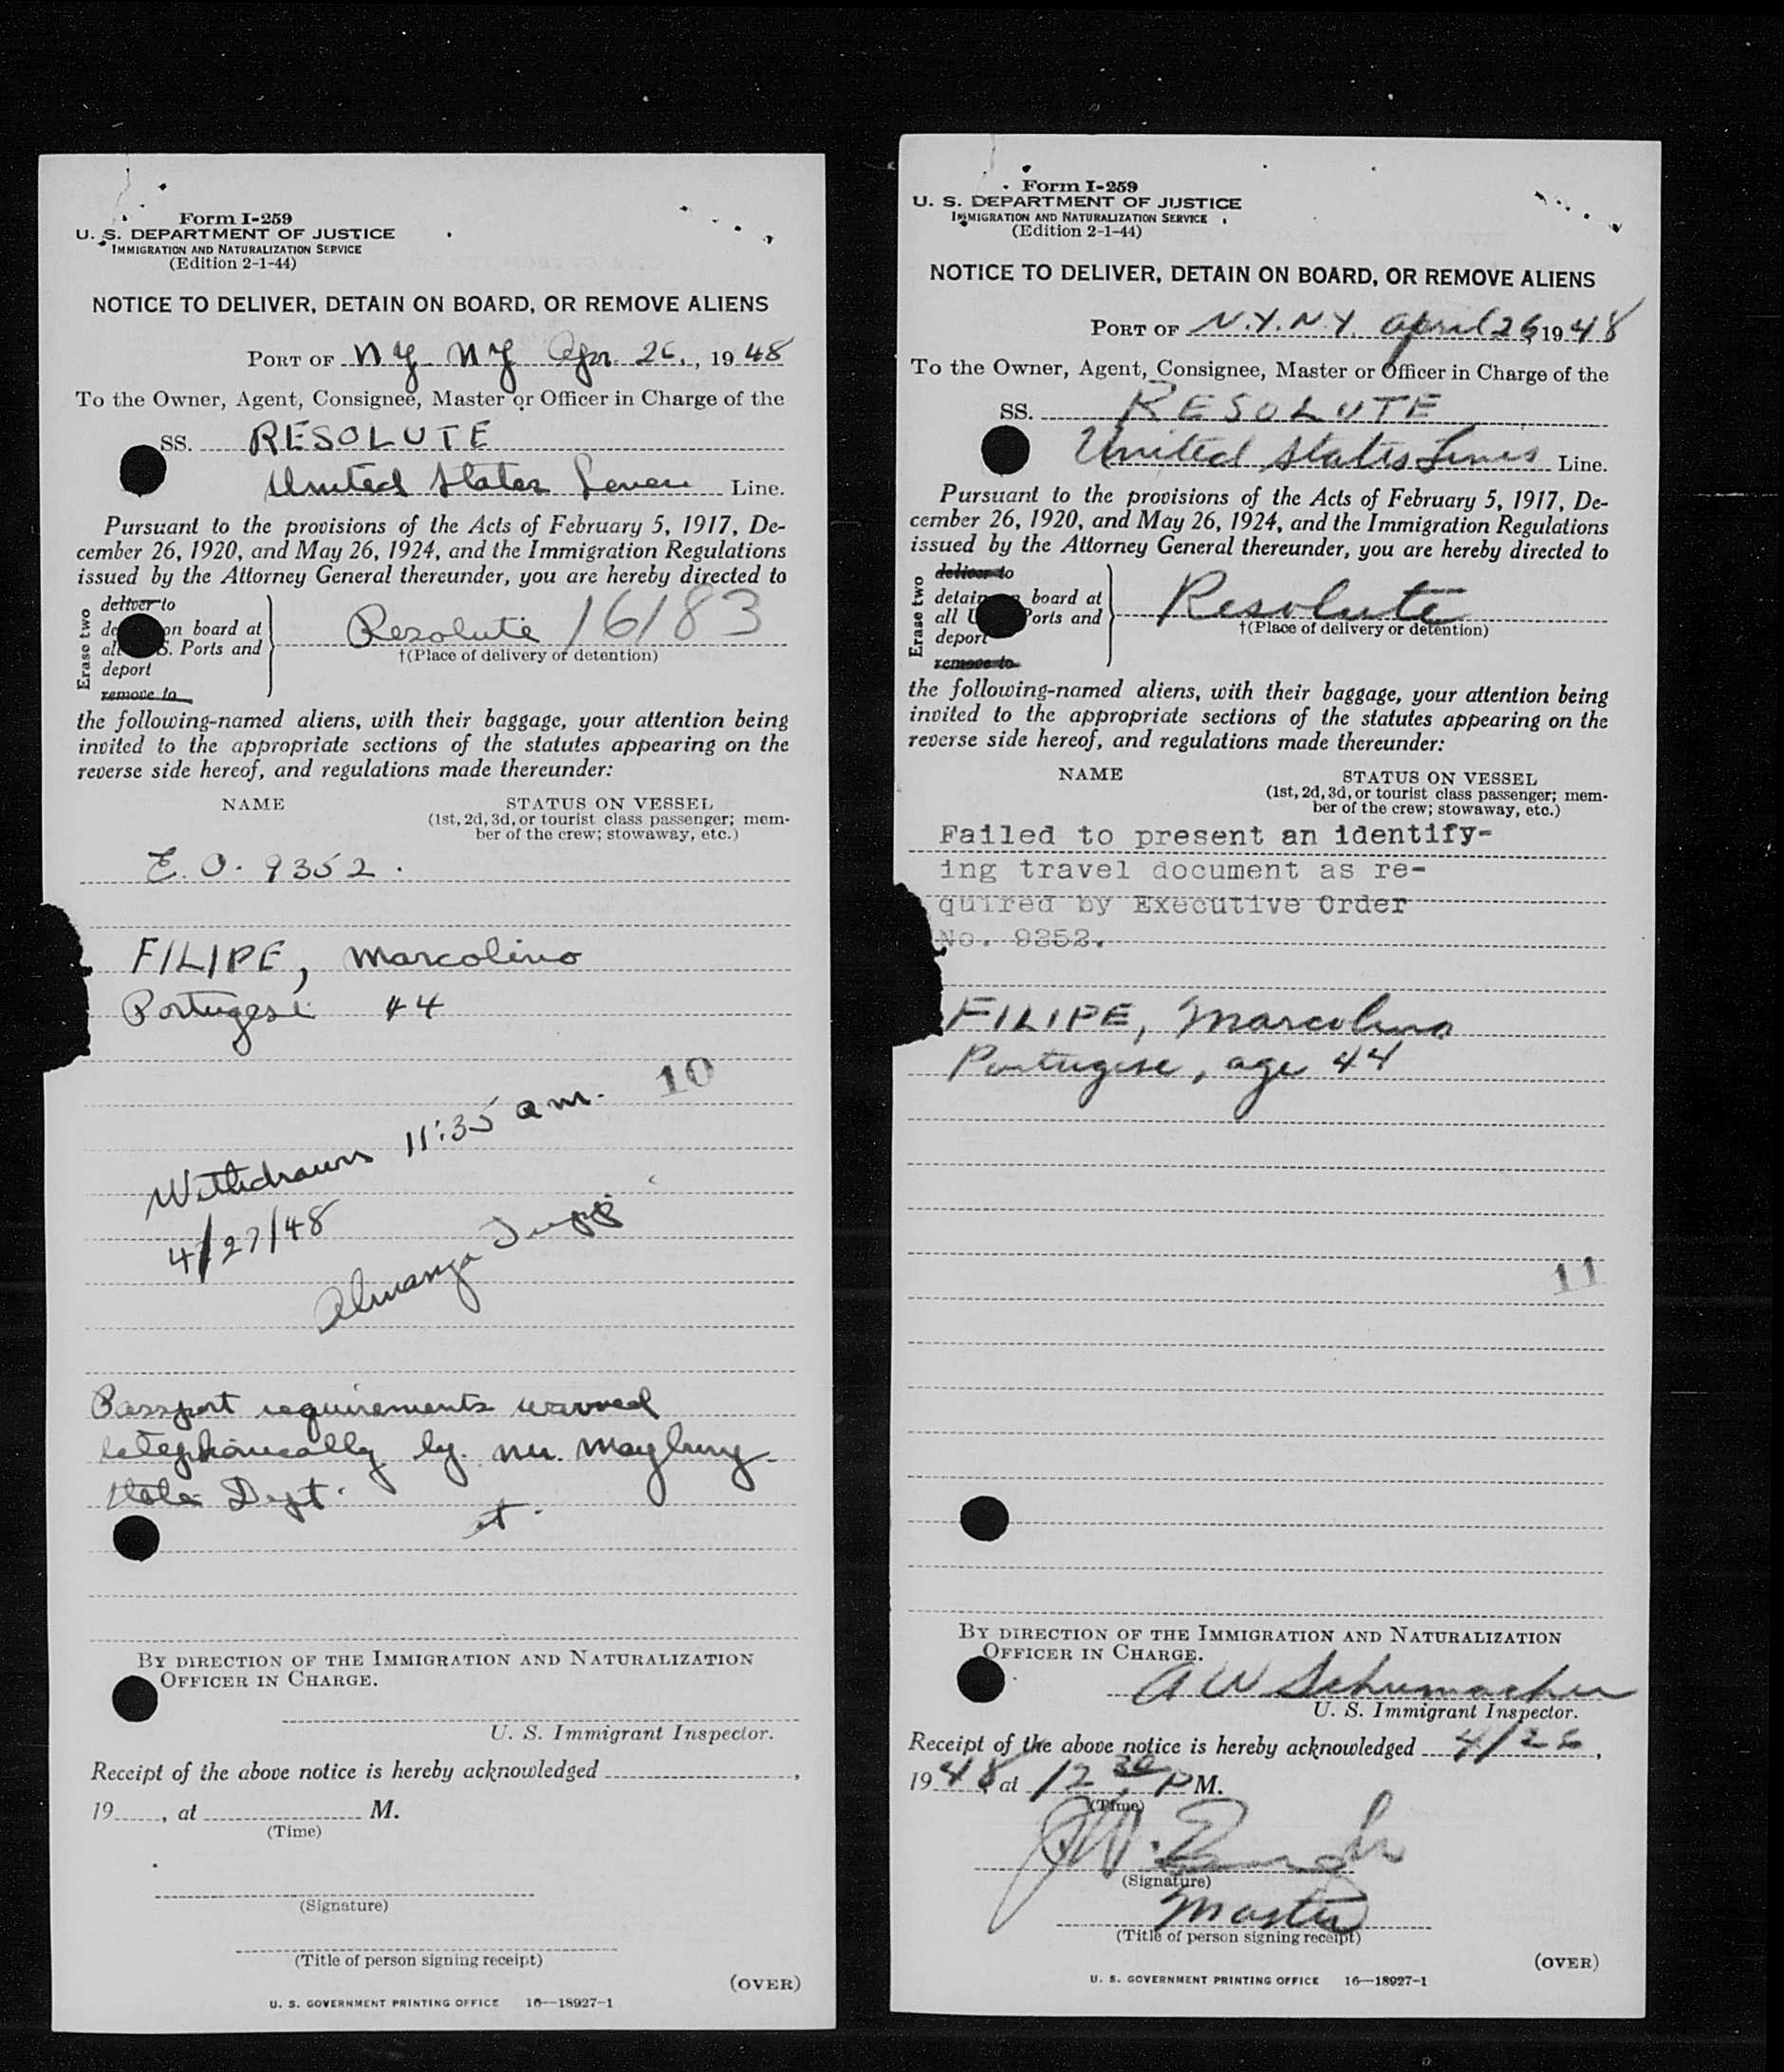 Form I-259
U. S. DEPARTMENT OF JUSTICE
IMMIGRATION AND NATURALIZATION SERVICE
(Edition 2-1-44)
NOTICE TO DELIVER, DETAIN ON BOARD, OR REMOVE ALIENS
PORT OF N Y. N Y Apr. 26., 1948
To the Owner, Agent, Consignee, Master or Officer in Charge of the
SS. RESOLUTE
United States Line.
Pursuant to the provisions of the Acts of February 5, 1917, De-
cember 26, 1920, and May 26, 1924, and the Immigration Regulations
issued by the Attorney General thereunder, you are hereby directed to
Erase two
deliver to
on board at
S. Ports and
deport
remove to
Resolute 16183
†(Place of delivery or detention)
the following-named aliens, with their baggage, your attention being
invited to the appropriate sections of the statutes appearing on the
reverse side hereof, and regulations made thereunder:
NAME STATUS ON VESSEL
(1st, 2d, 3d, or tourist class passenger; mem-
ber of the crew; stowaway, etc.)
E. O. 9352.
FILIPE, Marcolino
Portugese 44
10
Withdrawn 11:35 a.m.
4/27/48
Passport requirements waived
telephonically by. Mr. Maybury
State Dept.
BY DIRECTION OF THE IMMIGRATION AND NATURALIZATION
OFFICER IN CHARGE.
U. S. Immigrant Inspector.
Receipt of the above notice is hereby acknowledged ,
19 , at M.
(Time)
(Signature)
(Title of person signing receipt)
(OVER)
U. S. GOVERNMENT PRINTING OFFICE 16—18927-1
Form I-259
U. S. DEPARTMENT OF JUSTICE
IMMIGRATION AND NATURALIZATION SERVICE
(Edition 2-1-44)
NOTICE TO DELIVER, DETAIN ON BOARD, OR REMOVE ALIENS
PORT OF N.Y. N.Y. April 26, 1948
To the Owner, Agent, Consignee, Master or Officer in Charge of the
SS. RESOLUTE
United States Lines Line.
Pursuant to the provisions of the Acts of February 5, 1917, De-
cember 26, 1920, and May 26, 1924, and the Immigration Regulations
issued by the Attorney General thereunder, you are hereby directed to
Erase two
deliver to
detain board at
all Ports and
deport
remove to
Resolute
†(Place of delivery or detention)
the following-named aliens, with their baggage, your attention being
invited to the appropriate sections of the statutes appearing on the
reverse side hereof, and regulations made thereunder:
NAME STATUS ON VESSEL
(1st, 2d, 3d, or tourist class passenger; mem-
ber of the crew; stowaway, etc.)
Failed to present an identify-
ing travel document as re-
quired by Executive Order
No. 9352.
FILIPE, Marcolino
Portugese, age 44
11
BY DIRECTION OF THE IMMIGRATION AND NATURALIZATION
OFFICER IN CHARGE.
A W Schumacher
U. S. Immigrant Inspector.
Receipt of the above notice is hereby acknowledged 4/26,
1948 at 12 30 P M.
(Time)
(Signature)
Master
(Title of person signing receipt)
(OVER)
U. S. GOVERNMENT PRINTING OFFICE 16—18927-1